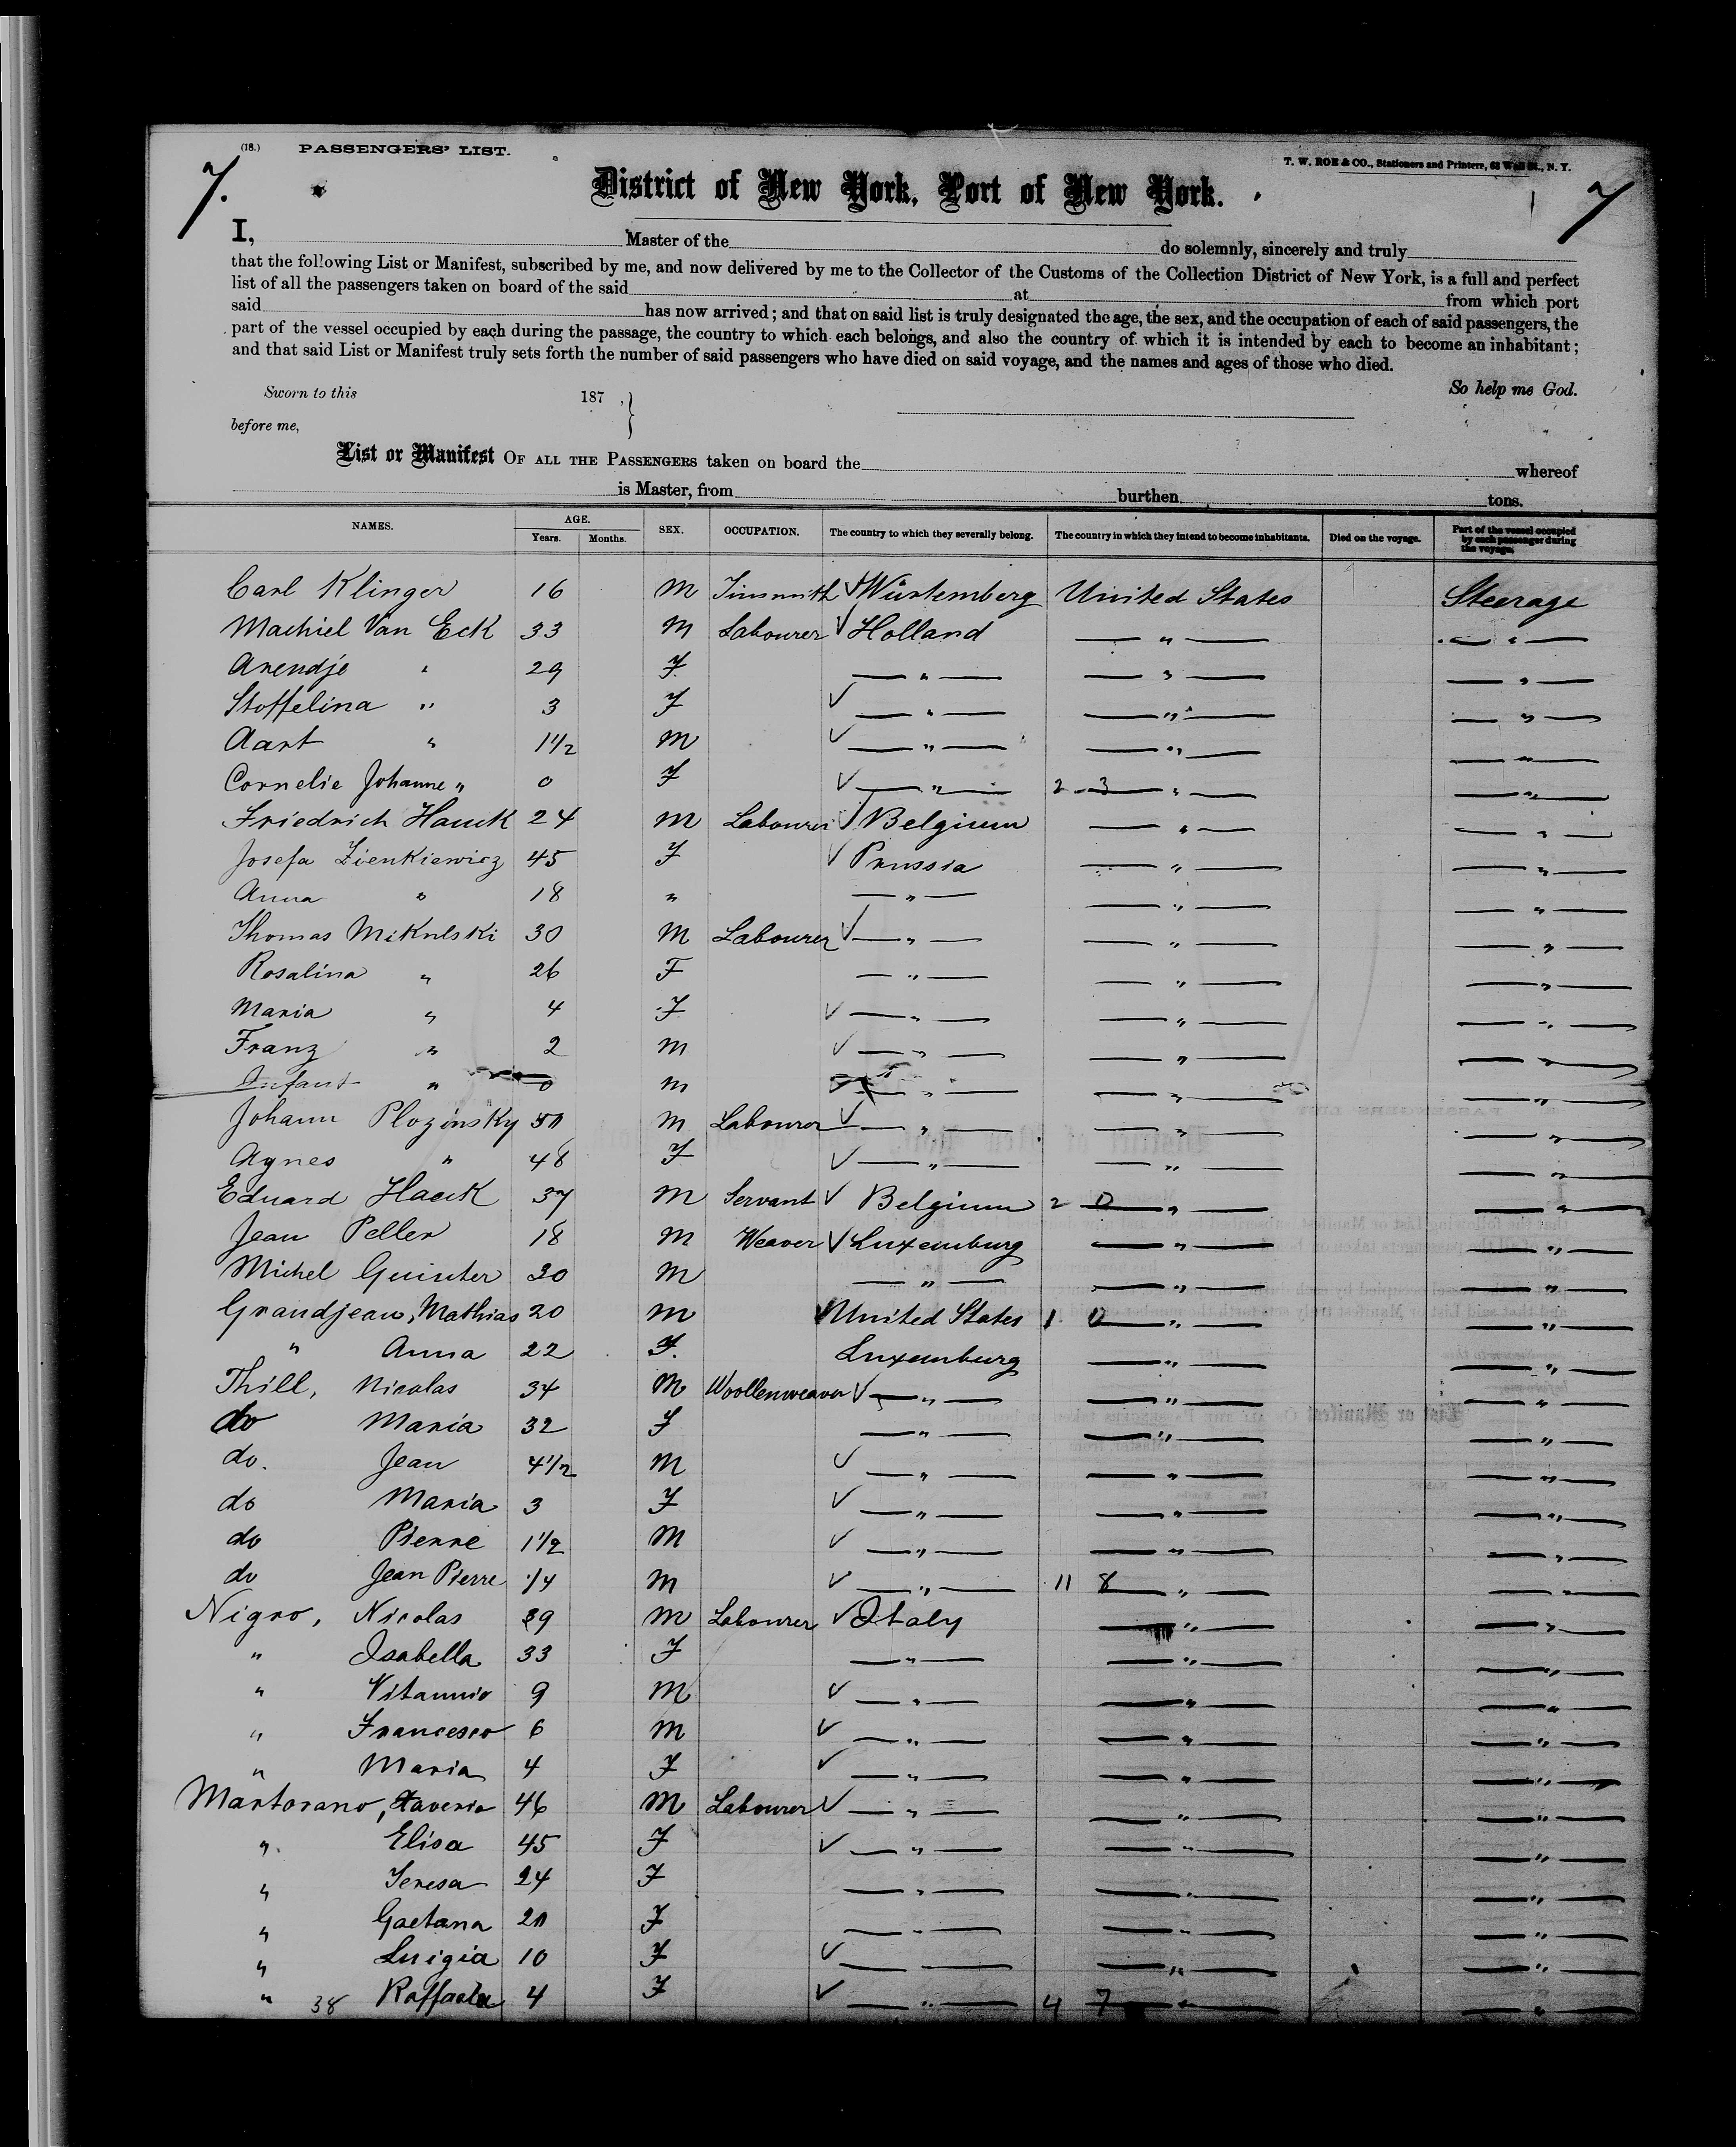 (18.) PASSENGERS' LIST.
T. W. ROE & CO., Stationers and Printers, 62 Wall St., N. Y.
7. 7
District of New York, Port of New York.
I, Master of the do solemnly, sincerely and truly
that the following List or Manifest, subscribed by me, and now delivered by me to the Collector of the Customs of the Collection District of New York, is a full and perfect
list of all the passengers taken on board of the said at from which port
said has now arrived; and that on said list is truly designated the age, the sex, and the occupation of each of said passengers, the
part of the vessel occupied by each during the passage, the country to which each belongs, and also the country of which it is intended by each to become an inhabitant;
and that said List or Manifest truly sets forth the number of said passengers who have died on said voyage, and the names and ages of those who died.
Sworn to this 187 , } So help me God.
before me,
List or Manifest OF ALL THE PASSENGERS taken on board the whereof
is Master, from burthen tons.
NAMES. AGE. Years. Months. SEX. OCCUPATION. The country to which they severally belong. The country in which they intend to become inhabitants. Died on the voyage. Part of the vessel occupied by each passenger during the voyage.
Carl Klinger 16 M Tinsmith ✓ Würtemberg United States Steerage
Machiel Van Eck 33 M Labourer ✓ Holland — " — — " —
Arendje " 29 F — " — — " — — " —
Stoffelina " 3 F ✓ — " — — " — — " —
Aart " 1 1/2 M ✓ — " — — " — — " —
Cornelie Johanne " 0 F ✓ — " — 2 - 3 — " — — " —
Friedrich Hauck 24 M Labourer ✓ Belgium — " — — " —
Josefa Zienkiewicz 45 F ✓ Prussia — " — — " —
Anna " 18 " — " — — " — — " —
Thomas Mikulski 30 M Labourer ✓ — " — — " — — " —
Rosalina " 26 F — " — — " — — " —
Maria " 4 F ✓ — " — — " — — " —
Franz " 2 M ✓ — " — — " — — " —
Infant " 0 M — " — — " — — " —
Johann Plozinsky 50 M Labourer ✓ — " — — " — — " —
Agnes " 48 F ✓ — " — — " — — " —
Eduard Hauck 37 M Servant ✓ Belgium 2 0 — " — — " —
Jean Peller 18 M Weaver ✓ Luxemburg — " — — " —
Michel Guinter 30 M — " — — " — — " —
Grandjean, Mathias 20 M ✓ United States 1 0 — " — — " —
" Anna 22 F. Luxemburg — " — — " —
Thill, Nicolas 34 M Woollenweaver ✓ — " — — " — — " —
do Maria 32 F — " — — " — — " —
do. Jean 4 1/2 M ✓ — " — — " — — " —
do Maria 3 F ✓ — " — — " — — " —
do Pierre 1 1/2 M ✓ — " — — " — — " —
do Jean Pierre 1/4 M ✓ — " — 11 8 — " — — " —
Nigro, Nicolas 39 M Labourer ✓ Italy — " — — " —
" Isabella 33 F — " — — " — — " —
" 9 M ✓ — " — — " — — " —
" Francesco 6 M ✓ — " — — " — — " —
" Maria 4 F ✓ — " — — " — — " —
Martorano, Xaverio 46 M Labourer ✓ — " — — " — — " —
" Elisa 45 F ✓ — " — — " — — " —
" Teresa 24 F — " — — " — — " —
" Gaetana 20 F — " — — " — — " —
" Luigia 10 F ✓ — " — — " — — " —
" 38 Raffaela 4 F ✓ — " — 4 7 — " — — " —